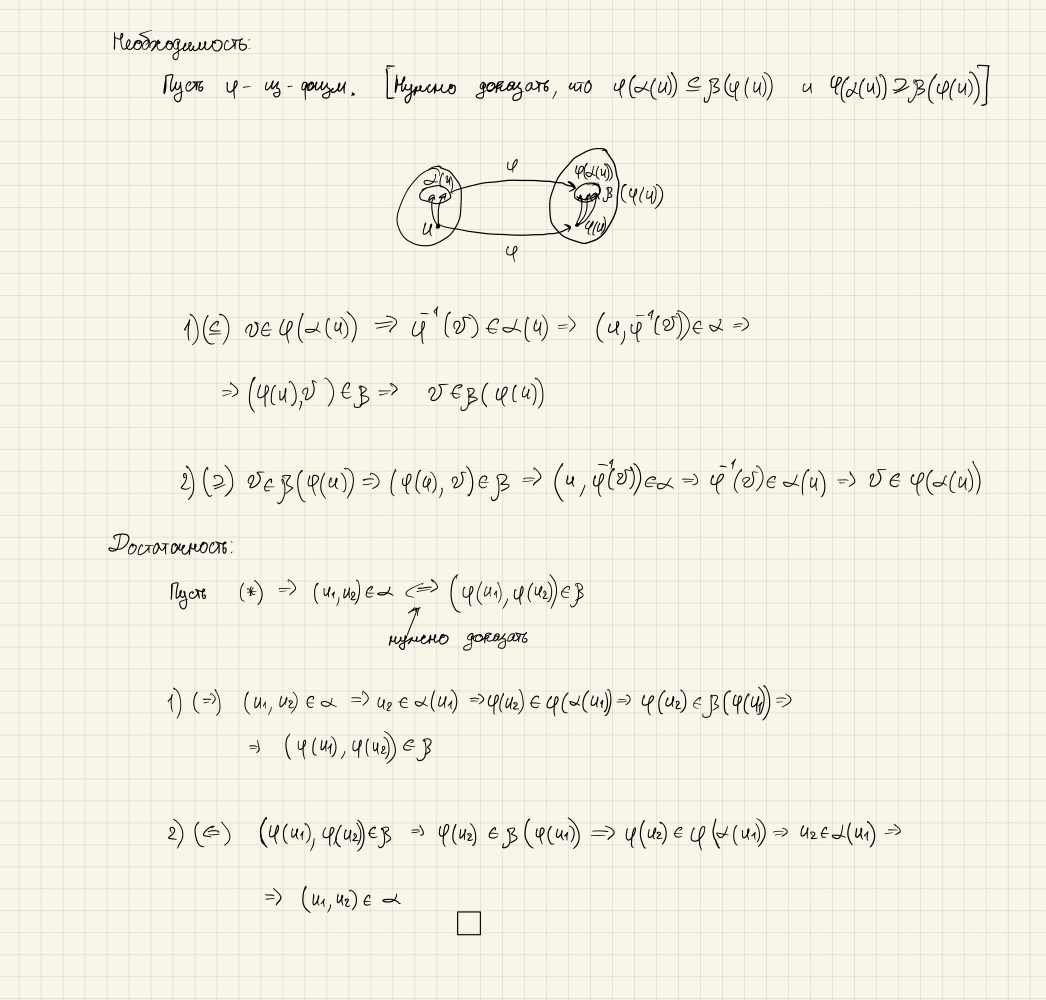 Необходимость:
Пусть φ - из-физм. [Нужно доказать, что φ(α(u)) ⊆ β(φ(u)) и φ(α(u)) ⊇ β(φ(u))]
φ
α(u)
φ(α(u))
β(φ(u))
u
φ(u)
φ
1)(⊆) v∈φ(α(u)) ⇒ φ⁻¹(v)∈α(u) ⇒ (u,φ⁻¹(v))∈α ⇒
⇒ (φ(u),v)∈β ⇒ v∈β(φ(u))
2)(⊇) v∈β(φ(u)) ⇒ (φ(u),v)∈β ⇒ (u,φ⁻¹(v))∈α ⇒ φ⁻¹(v)∈α(u) ⇒ v∈φ(α(u))
Достаточность:
Пусть (*) ⇒ (u₁,u₂)∈α ⇔ (φ(u₁),φ(u₂))∈β
нужно доказать
1) (⇒) (u₁,u₂)∈α ⇒ u₂∈α(u₁) ⇒ φ(u₂)∈φ(α(u₁)) ⇒ φ(u₂)∈β(φ(u₁)) ⇒
⇒ (φ(u₁),φ(u₂))∈β
2) (⇐) (φ(u₁),φ(u₂))∈β ⇒ φ(u₂)∈β(φ(u₁)) ⇒ φ(u₂)∈φ(α(u₁)) ⇒ u₂∈α(u₁) ⇒
⇒ (u₁,u₂)∈α
□